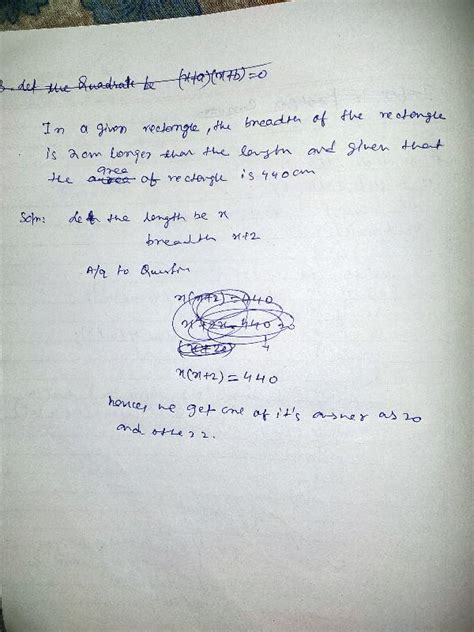 3. let the Quadrate be (x+a)(x+b)=0
In a given rectangle, the breadth of the rectangle
is 2cm longer than the length and given that
the area of rectangle is 440cm
Soln: let the length be x
breadth x+2
A/q to Question
x(x+2)=440
x²+2x-440=0
(x+22)
x(x+2)=440
hence, we get one of it's answer as 20
and other 22.